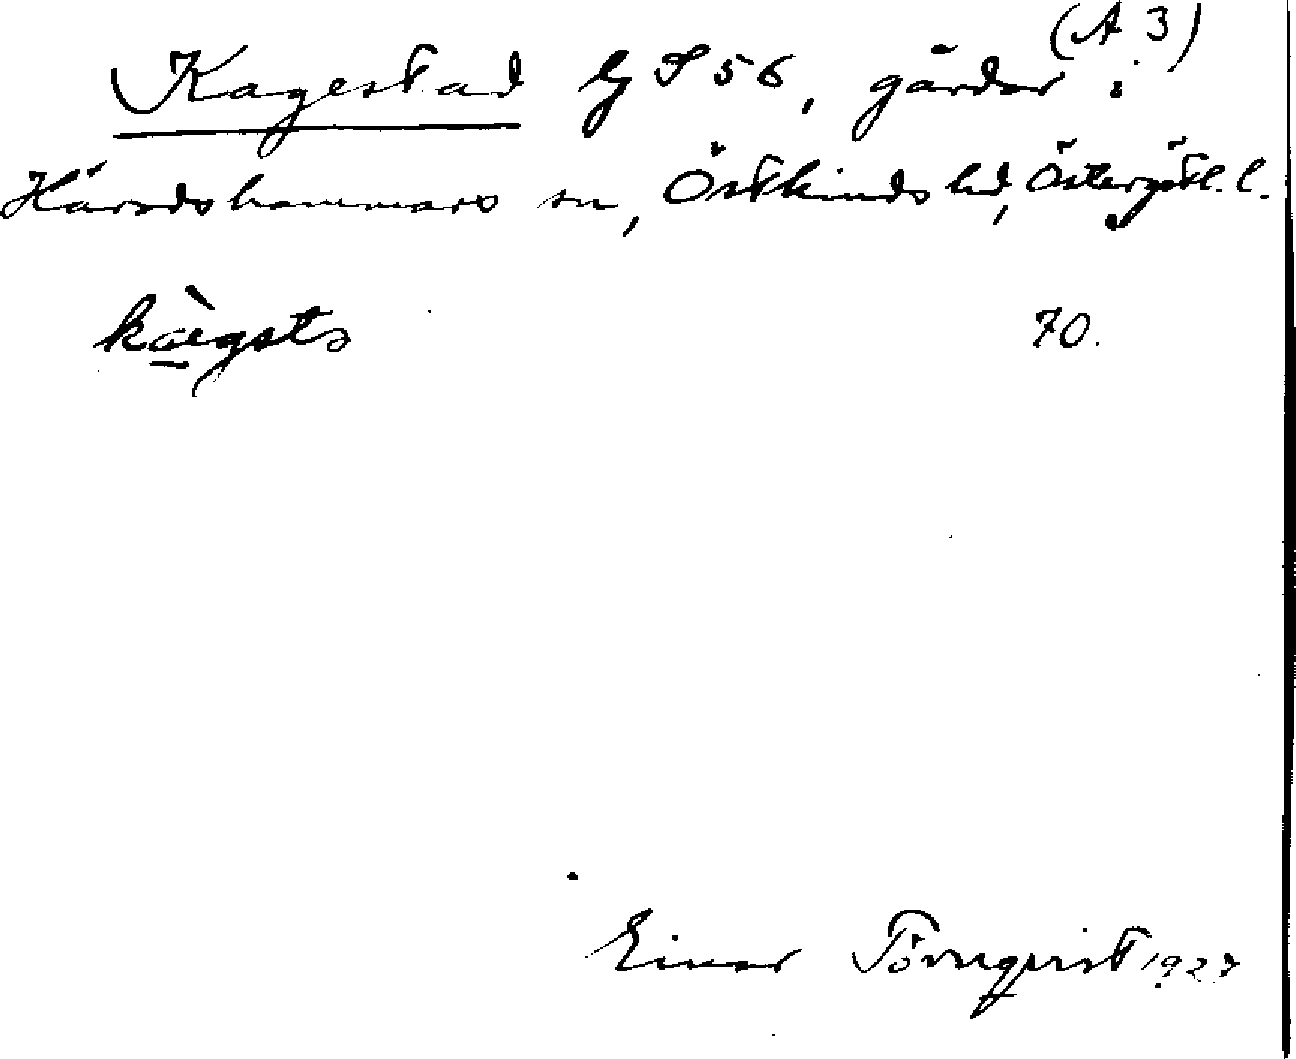 (A 3)
Kagestad GS 56, gårdar i
Häradshammars sn, Östkinds hd, Östergötl. l.
kàegsta 70.
Einar Törnqvist 1927